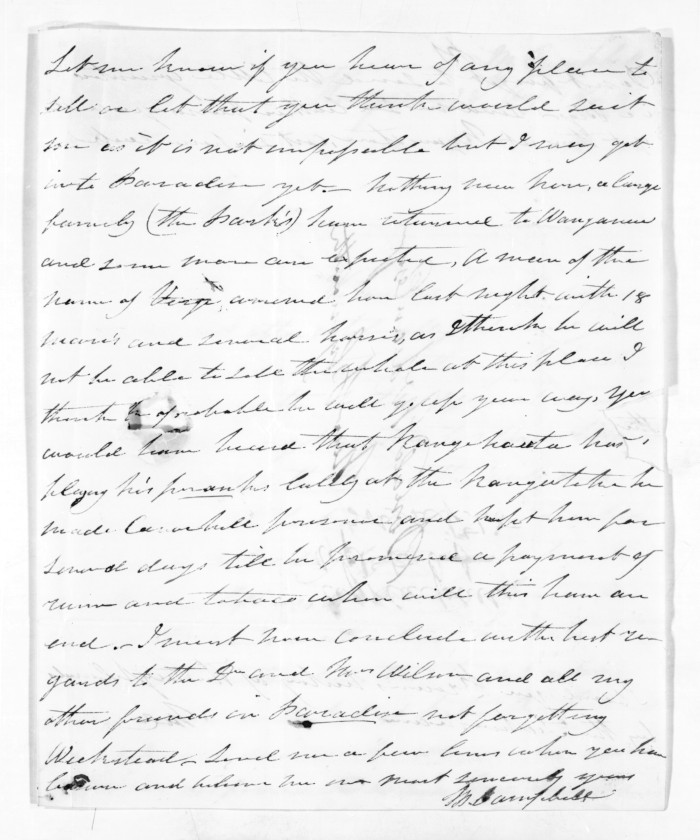 Let me know if you hear of any place to
sell or let that you think would suit
me as it is not impossible but I may get
into Paradise yet. Nothing new here, a large
family (the Park's) have returned to Wanganui
and some more are expected, A man of the
name of arrived here last night with 18
mares and several horses, as I think he will
not be able to sell the whole at this place I
think probable he will go up your way, You
would have heard that Rangihaeata has
playing his pranks lately at the Rangitikei he
made prisoner and kept him for
several days till he promised a payment of
rum and tobacco when will this have an
end. I must now conclude with best re-
gards to the Dr and Mrs Wilson and all my
other friends in Paradise not forgetting
Wicksteed. Send me a few lines when you have
leisure and believe me ever most sincerely yours
M Campbell